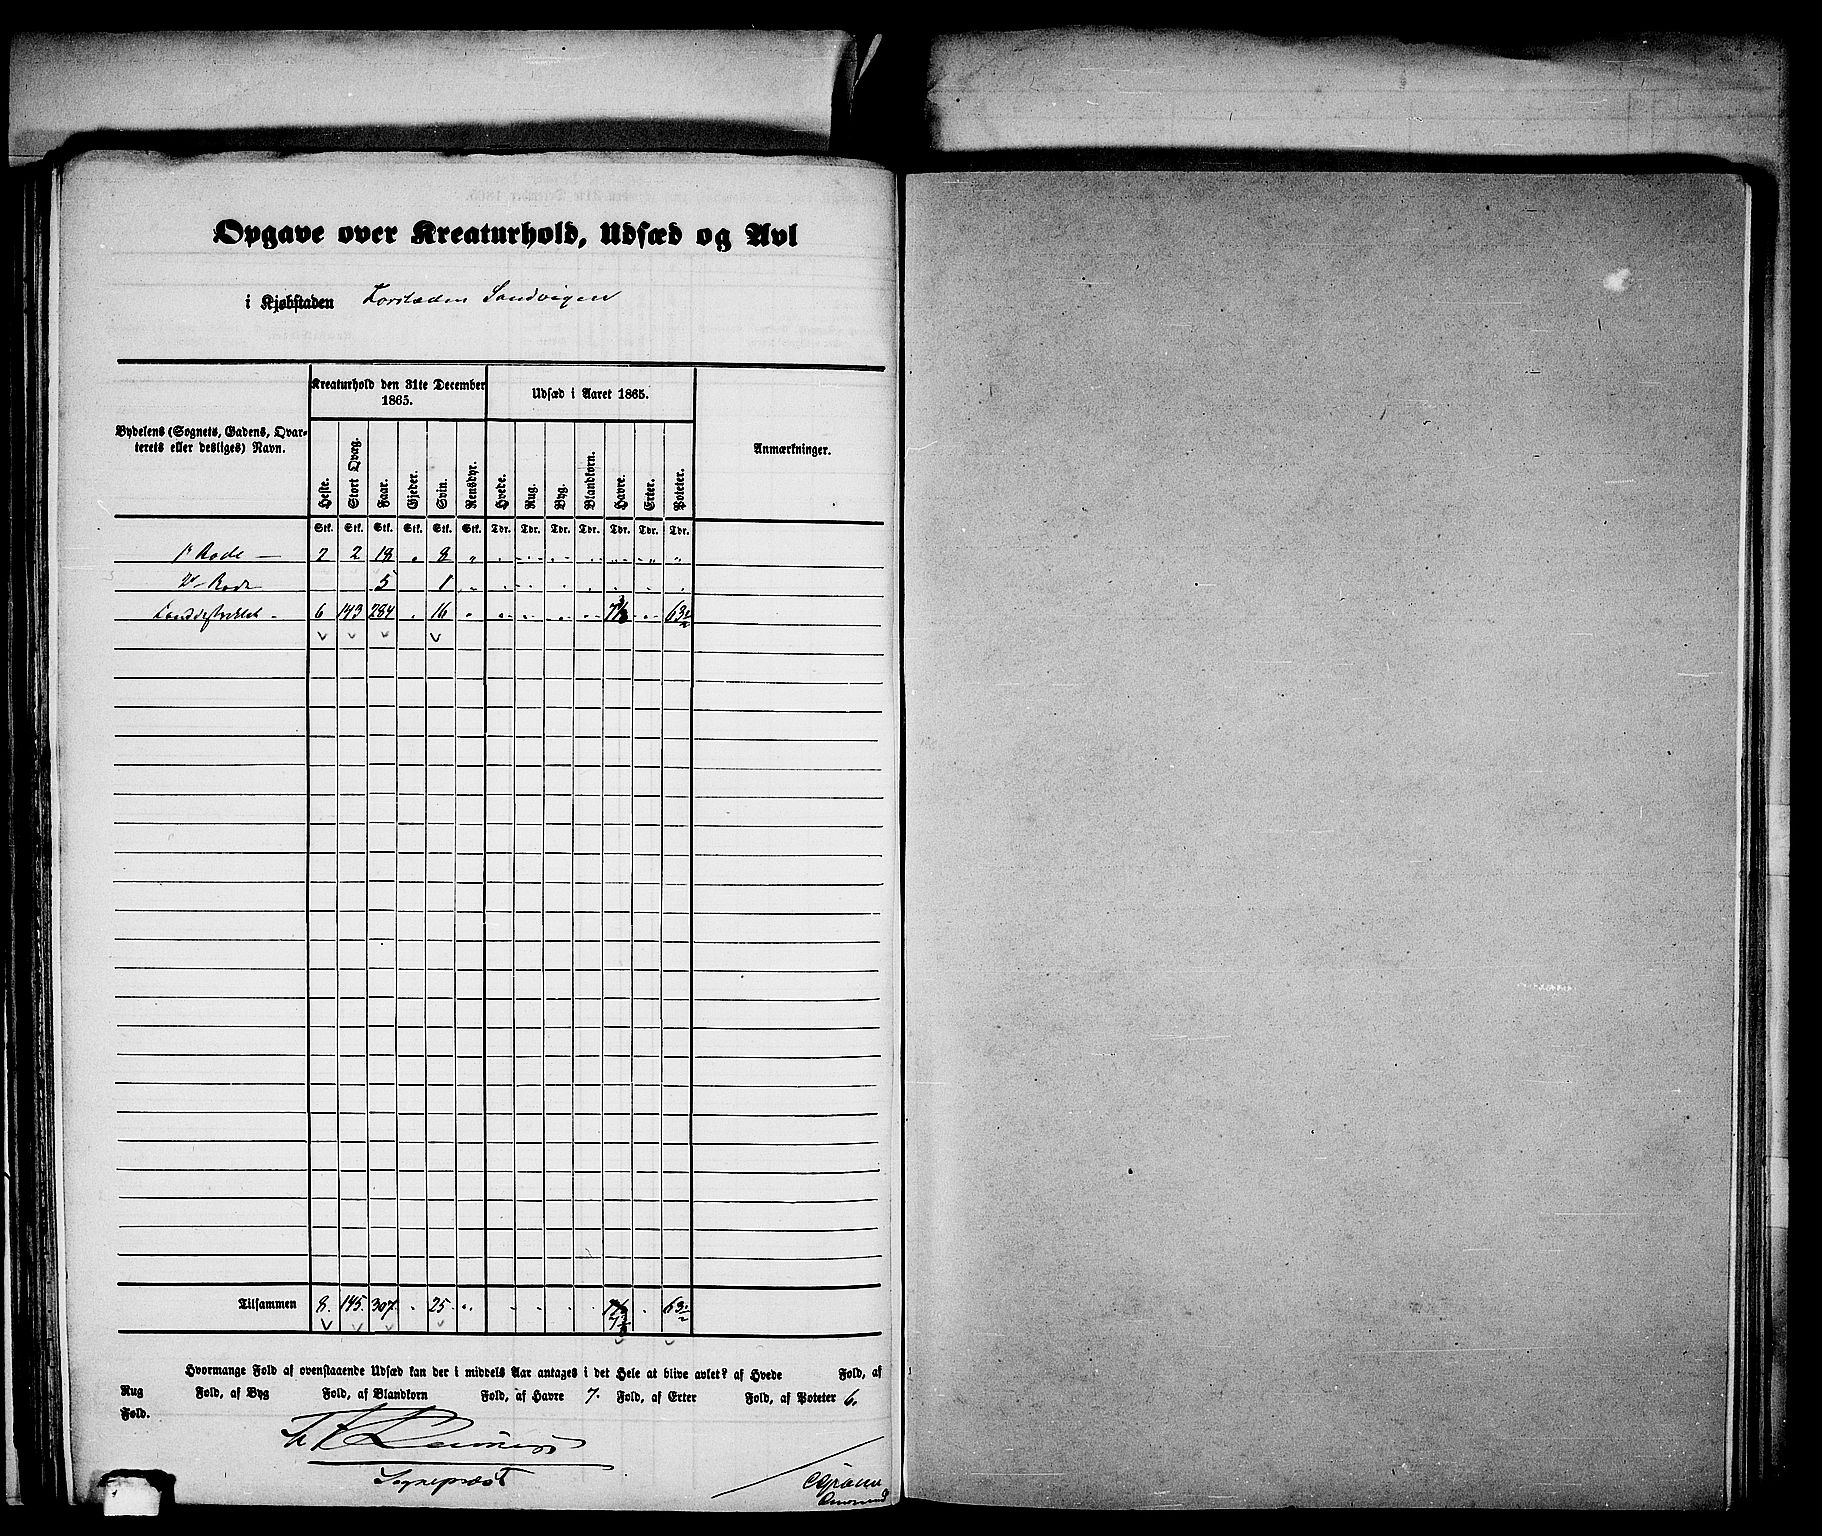 Opgave over Kreaturhold, Udsæd og Avl
i Kjøbstaden Forstaden Sandvigen
Bydelens (Sognets, Gadens, Qvarterets eller desliges) Navn.
Kreaturhold den 31te December 1865.
Udsæd i Aaret 1865.
Anmærkninger.
Heste. Stort Qvæg. Faar. Gjeder. Svin. Rensdyr. Hvede. Rug. Byg. Blandkorn. Havre. Erter. Poteter.
Stk. Stk. Stk. Stk. Stk. Stk. Tdr. Tdr. Tdr. Tdr. Tdr. Tdr. Tdr.
1ste Rode — 2 2 18 " 8 "
2den Rode 5 1
Landdistriktet - 6 143 284 " 16 "
Tilsammen 8. 145. 307. " 25 "
Hvormange Fold af ovenstaaende Udsæd kan der i middels Aar antages i det Hele at blive avlet? af Hvede Fold, af
Rug Fold, af Byg Fold, af Blandkorn Fold, af Havre 7. Fold, af Erter Fold, af Poteter 6.
Fold.
Sognepræst